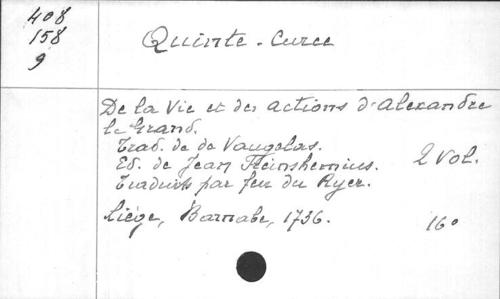 408
158
9
Quinte-Curce
De la Vie et des actions d'Alexandre
le Grand.
Trad. de de Vaugelas.
Ed. de Jean Heinshemius. 2 Vol.
Traduits par feu du Ryer.
Liége, Barnabe, 1736. 16°